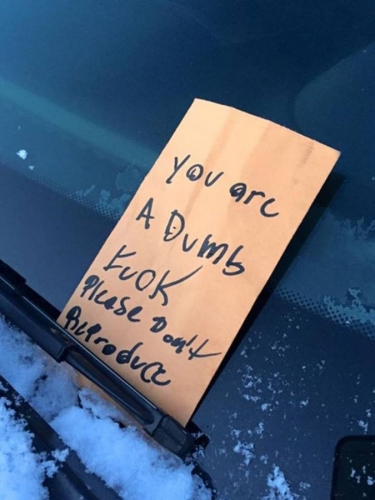 You are
A Dumb
FuCK
Please Don't
Reproduce